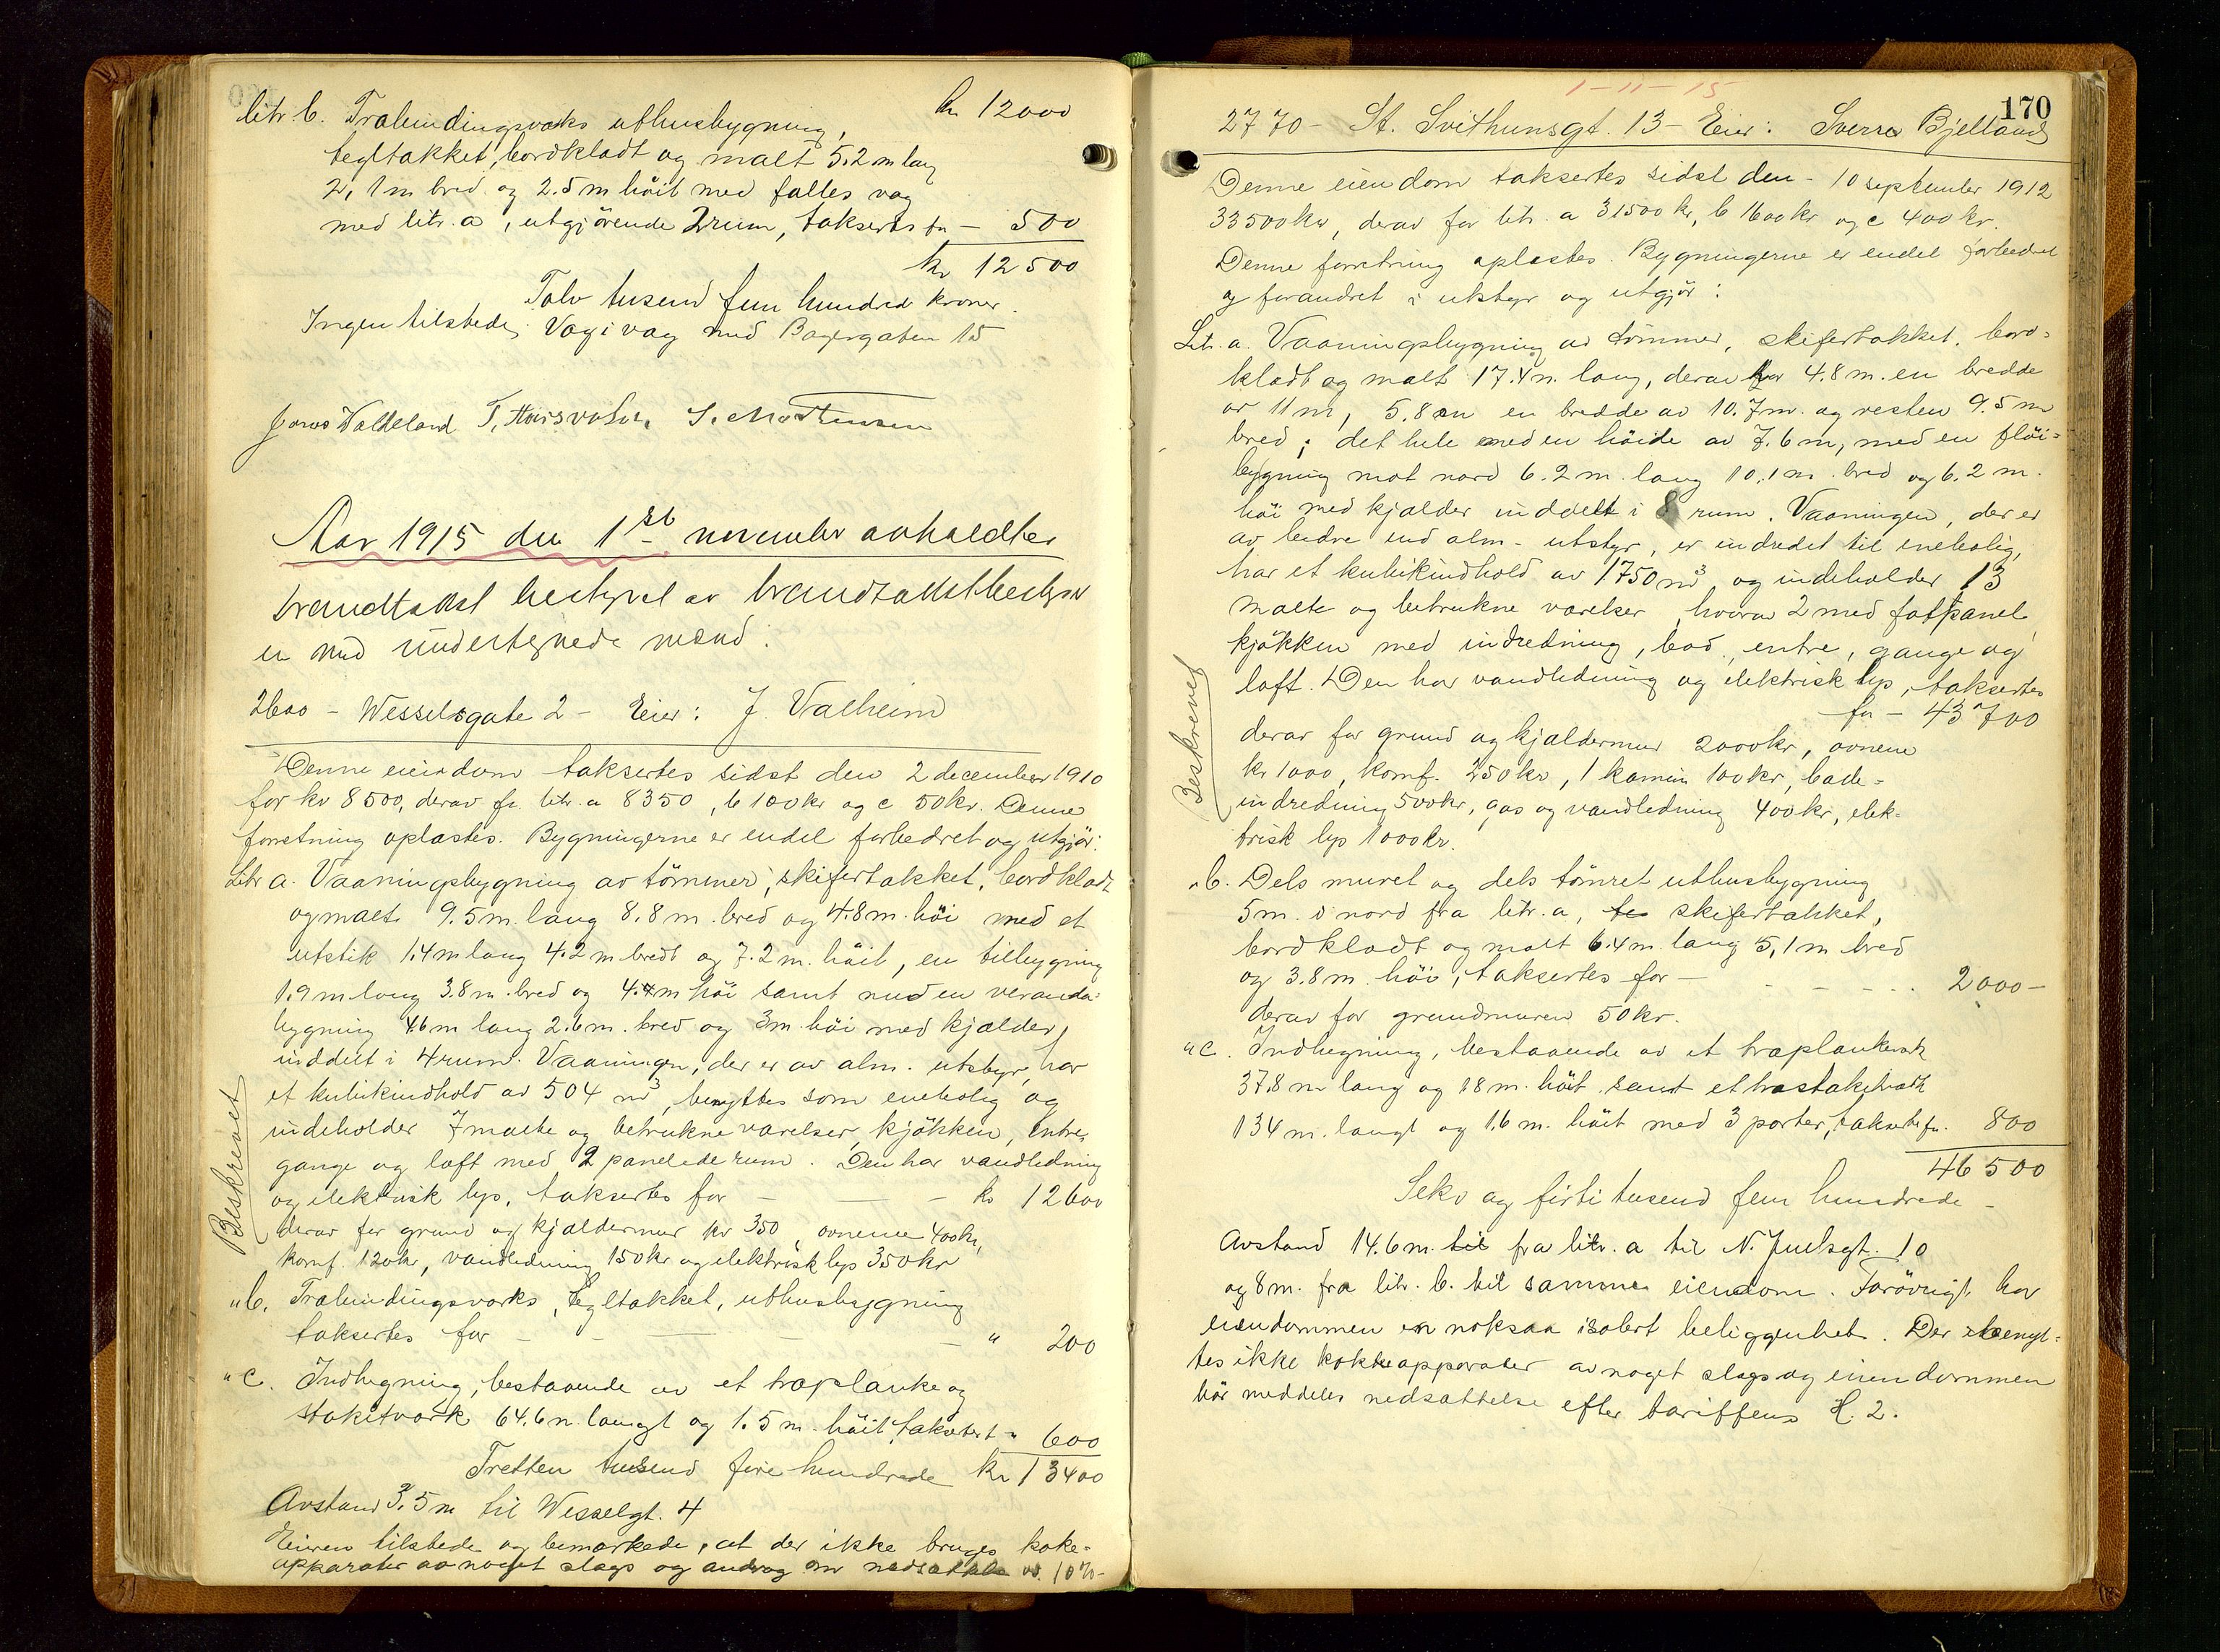 kr 12000
litr b. Træbindingsværks uthusbygning,
tegltækket, bordklædt og malt 5.2 m lang
2,1 m bred og 2.5 m höit med fælles væg
med litr. a, utgjörende 2 rum, takseres for – 500
kr 12500
Tolv tusend fem hundred kroner.
Ingen tilstede. Væg i væg med Bagergaten 15
Jonas Waldeland S. Mortensen
Aar 1915 den 1st november avholdtes
brandtakst bestyret av brandtakstbestyr
er med undertegnede mænd:
2600 – Wesselsgate 2 – Eier: J. Valheim
Denne eiendom taksertes sidst den 2 december 1910
for kr 8500, derav for litr. a 8350, b 100 kr og c 50 kr. Denne
forretning oplæstes. Bygningerne er endel forbedret og utgjör:
Litr a. Vaaningsbygning av tömmer, skifertækket, bordklædt
og malt 9.5 m. lang 8.8 m. bred og 4.8 m. höi med et
utstik 1.4 m lang 4.2 m bredt og 7.2 m. höit, en tilbygning
1.9 m lang 3.8 m. bred og 4.4 m höi samt med en veranda-
bygning 4.6 m lang 2.6 m. bred og 3 m. höi med kjælder,
inddelt i 4 rum. Vaaningen, der er av alm. utstyr, har
et kubikindhold av 504 m3, benyttes som enebolig og
indeholder 7 malte og betrukne værelser, kjökken, entre,
gange og loft med 2 panelede rum. Den har vandledning
og elektrisk lys, taksertes for – – – kr 12600
Beskrevet
derav for grund og kjældermur kr 350, ovnene 400 kr,
komf. 120 kr, vandledning 150 kr og elektrisk lys 350 kr
" b. Træbindingsværks, tegltækket, uthusbygning
taksertes for – – – – – " 200
" c. Indhegning, bestaaende av et træplanke og
stakitværk 64.6 m. langt og 1.5 m. höit, taksert " 600
Tretten tusend fire hundrede kr 13400
Avstand 3.5 m til Wesselgt. 4
Eieren tilstede og bemærkede, at der ikke bruges koke-
apparater av noget slags og androg om nedsættelse av. 10%-
1-11-15
170
2770 – St. Svithunsgt. 13 – Eier: Sverre Bjelland
Denne eiendom taksertes sidst den – 10 september 1912
33500 kr, derav for litr. a 31500 kr, b 1600 kr og c 400 kr.
Denne forretning oplæstes. Bygningerne er endel forbedret
og forandret i utstyr og utgjör:
Litr. a. Vaaningsbygning av tömmer, skifertækket, bord-
klædt og malt 17.4 m. lang, derav for 4.8 m. en bredde
av 11 m, 5.8 m en bredde av 10.7 m. og resten 9.5 m
bred; det hele med en höide av 7.6 m, med en flöi-
bygning mot nord 6.2 m. lang 10.1 m. bred og 6.2 m.
höi med kjælder inddelt i 8 rum. Vaaningen, der er
av bedre end alm. utstyr, er indredet til enebolig,
har et kubikindhold av 1750 m3, og indeholder 13
malte og betrukne værelser, hvorav 2 med fatpanel,
kjökken med indredning, bad, entre, gange og
loft. Den har vandledning og elektrisk lys, taksertes
for – 43700
Beskrevet
derav for grund og kjældermur 2000 kr, ovnene
kr 1000, komf. 250 kr, 1 kamin 100 kr, bade-
indredning 500 kr, gas og vandledning 400 kr, elek-
trisk lys 1000 kr.
" b. Dels muret og dels tömret uthusbygning
5 m. i nord fra litr. a, skifertækket,
bordklædt og malt 6.4 m. lang 5,1 m bred
og 3.8 m. höi, taksertes for – – – – 2000 –
derav for grundmuren 50 kr.
" c. Indhegning, bestaaende av et træplankeverk
37.8 m lang og 1.8 m. höit samt et træstakitværk
134 m. langt og 1.6 m. höit med 3 porter, taksertes for. 800
46500
Seks og firti tusend fem hundrede –
Avstand 14.6 m. til fra litr. a til N. Juelsgt. 10
og 8 m. fra litr. b. til samme eiendom. Forövrigt har
eiendommen en noksaa isolert beliggenhet. Der benyt-
tes ikke kokeapparater av noget slags og eiendommen
bör meddeles nedsættelse efter tariffens H. 2.